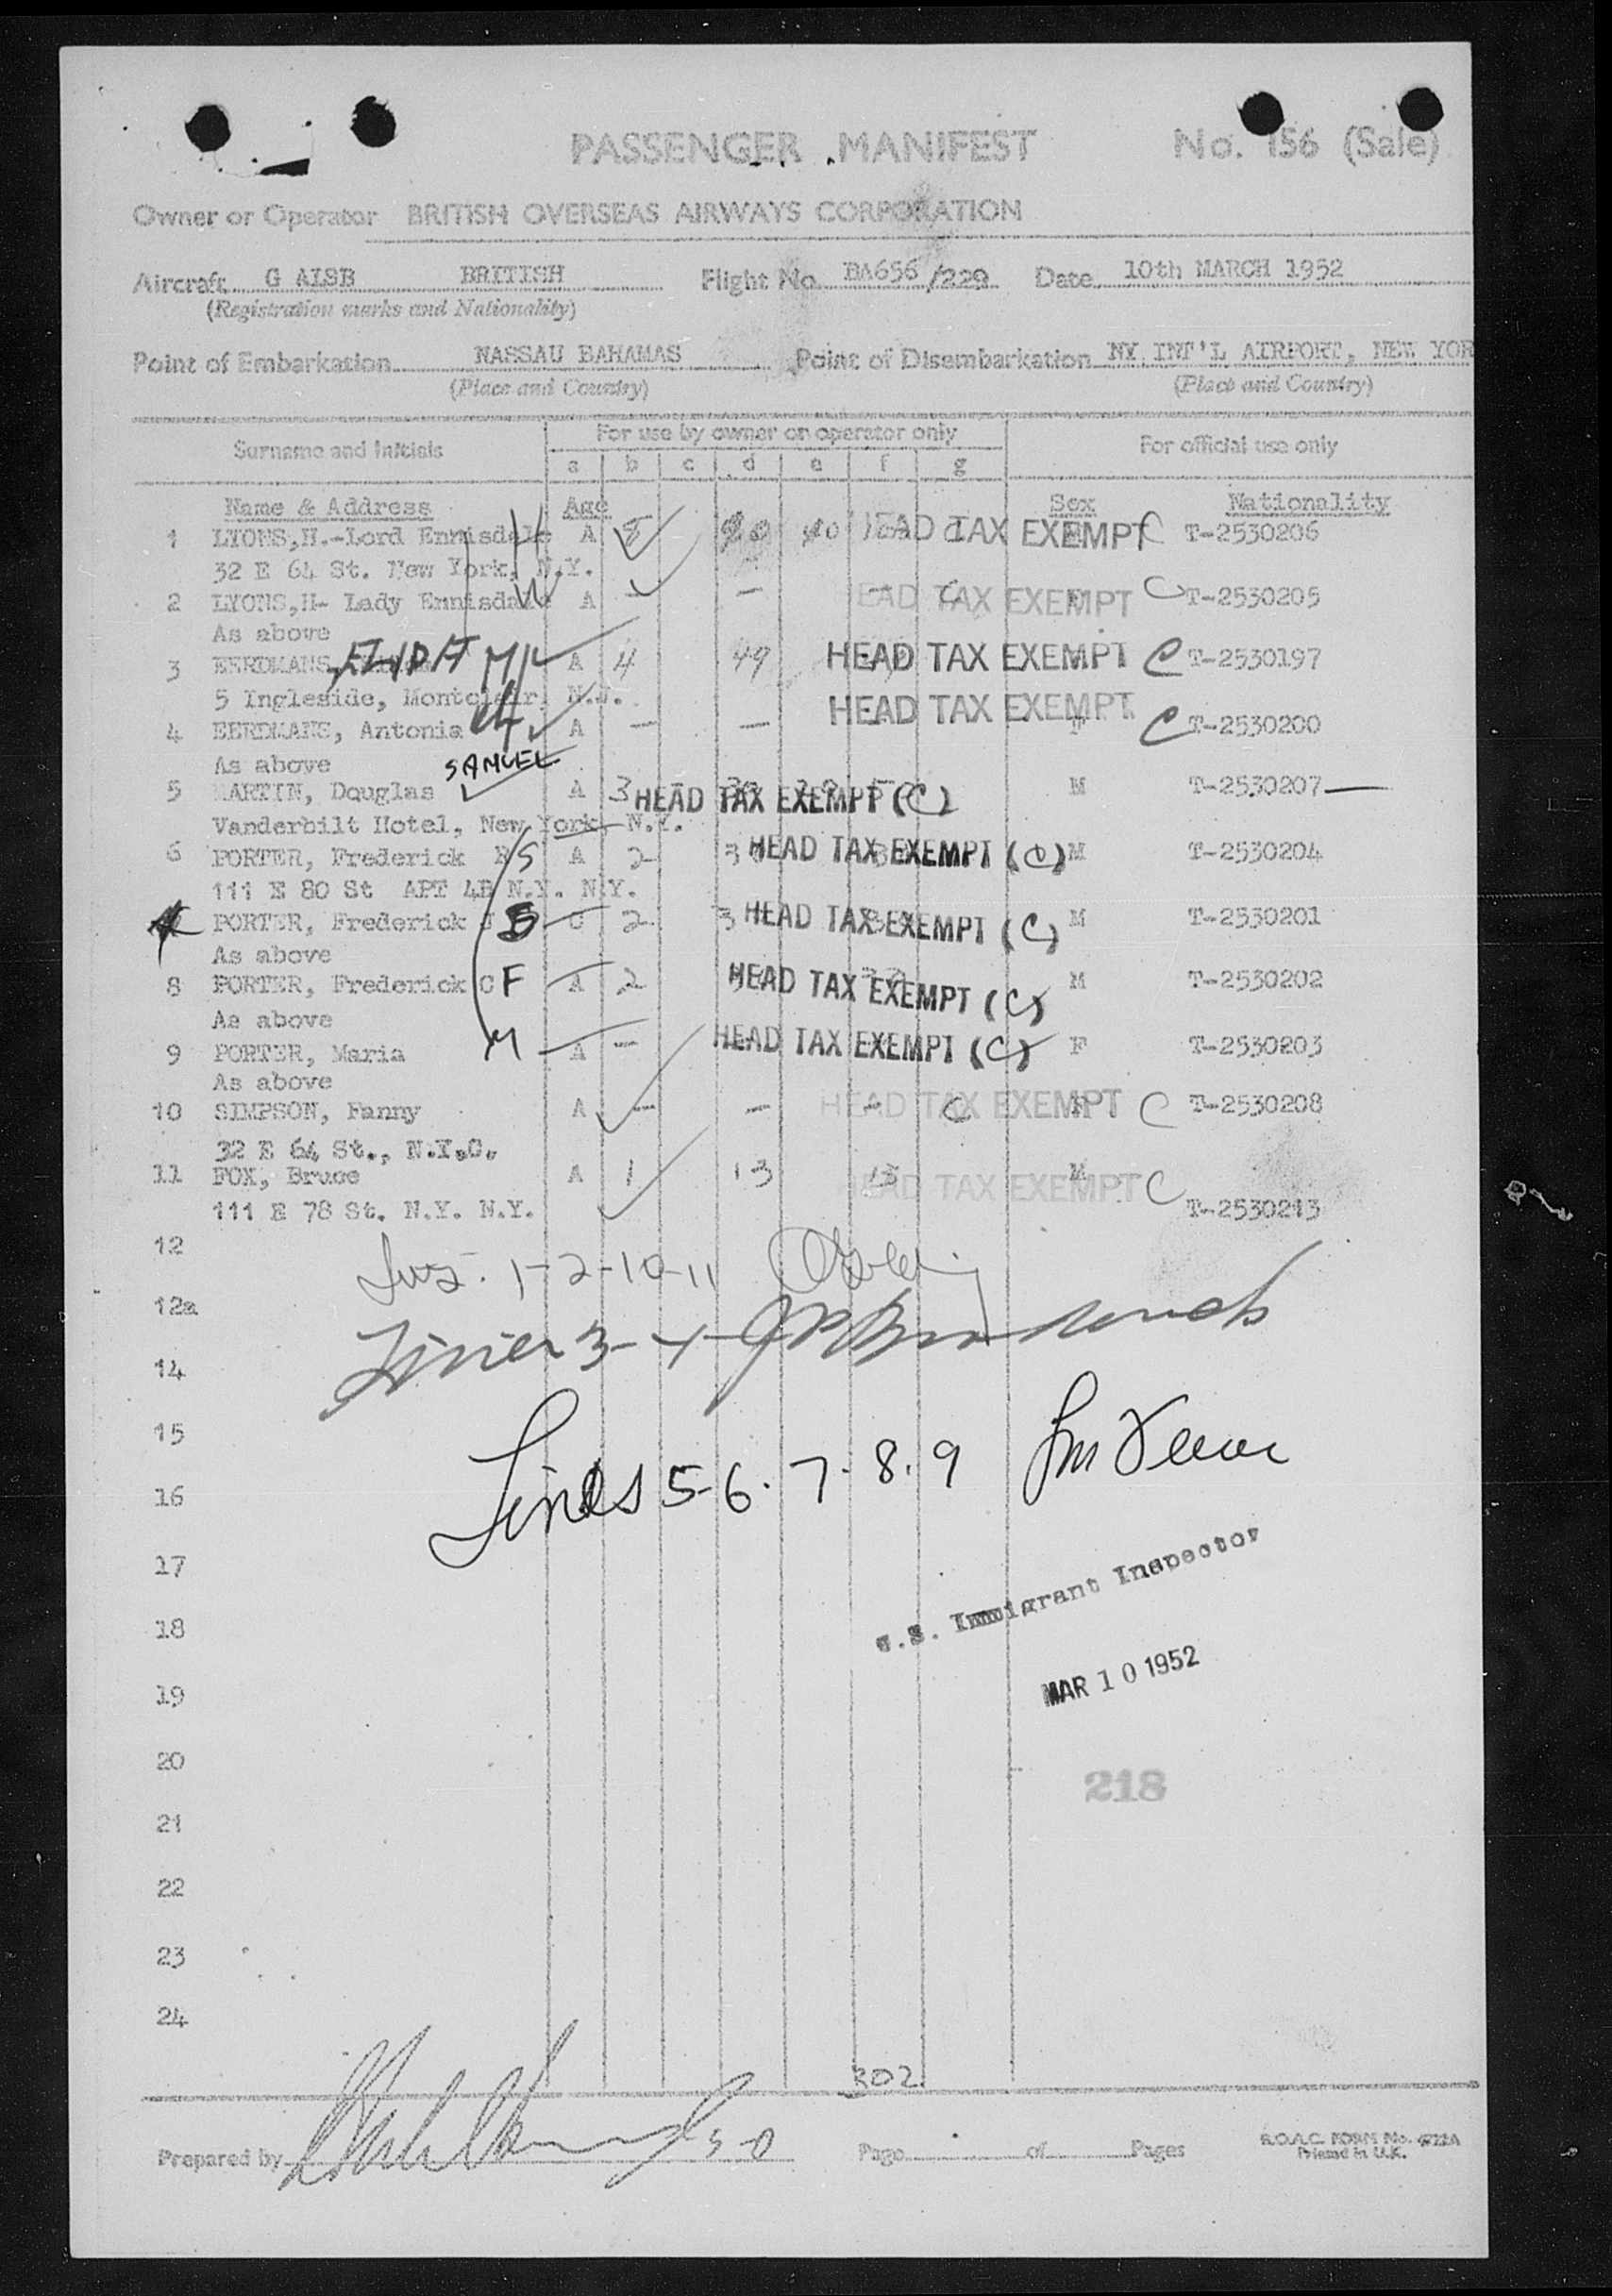 PASSENGER MANIFEST No. 156 (Sale)
Owner or Operator BRITISH OVERSEAS AIRWAYS CORPORATION
Aircraft G ALSB BRITISH Flight No. BA656/229 Date 10th MARCH 1952
(Registration marks and Nationality)
Point of Embarkation NASSAU BAHAMAS Point of Disembarkation NY INT'L AIRPORT, NEW YOR
(Place and Country) (Place and Country)
Surname and Initials For use by owner or operator only For official use only
a b c d e f g
Name & Address Age Sex Nationality
1 LYONS,H.-Lord Ennisdale H A HEAD TAX EXEMPT C T-2530206
32 E 64 St. New York, N.Y.
2 LYONS,H- Lady Ennisdale A - - - HEAD TAX EXEMPT C T-2530205
As above
3 EERDMANS, A 4 49 HEAD TAX EXEMPT C T-2530197
5 Ingleside, Montclair, N.J.
4 EERDMANS, Antonia A - - HEAD TAX EXEMPT F C T-2530200
As above
SAMUEL
5 MARTIN, Douglas A 3 HEAD TAX EXEMPT (C) M T-2530207
Vanderbilt Hotel, New York, N.Y.
6 PORTER, Frederick S A 2 HEAD TAX EXEMPT (C) M T-2530204
111 E 80 St APT 4B N.Y. N.Y.
PORTER, Frederick J C 2 HEAD TAX EXEMPT (C) M T-2530201
As above
8 PORTER, Frederick C F A 2 HEAD TAX EXEMPT (C) M T-2530202
As above
9 PORTER, Maria M A - HEAD TAX EXEMPT (C) F T-2530203
As above
10 SIMPSON, Fanny A - - - HEAD TAX EXEMPT F C T-2530208
32 E 64 St., N.Y.C.
11 FOX, Bruce A 1 13 13 HEAD TAX EXEMPT M C
111 E 78 St. N.Y. N.Y. T-2530213
12
1-2-10-11
12a
Lines 3-4
14
15
Lines 5-6. 7. 8. 9
16
17
U.S. Immigrant Inspector
18
MAR 10 1952
19
20
218
21
22
23
24
302
Prepared by Page of Pages B.O.A.C. FORM No.
Printed in U.K.